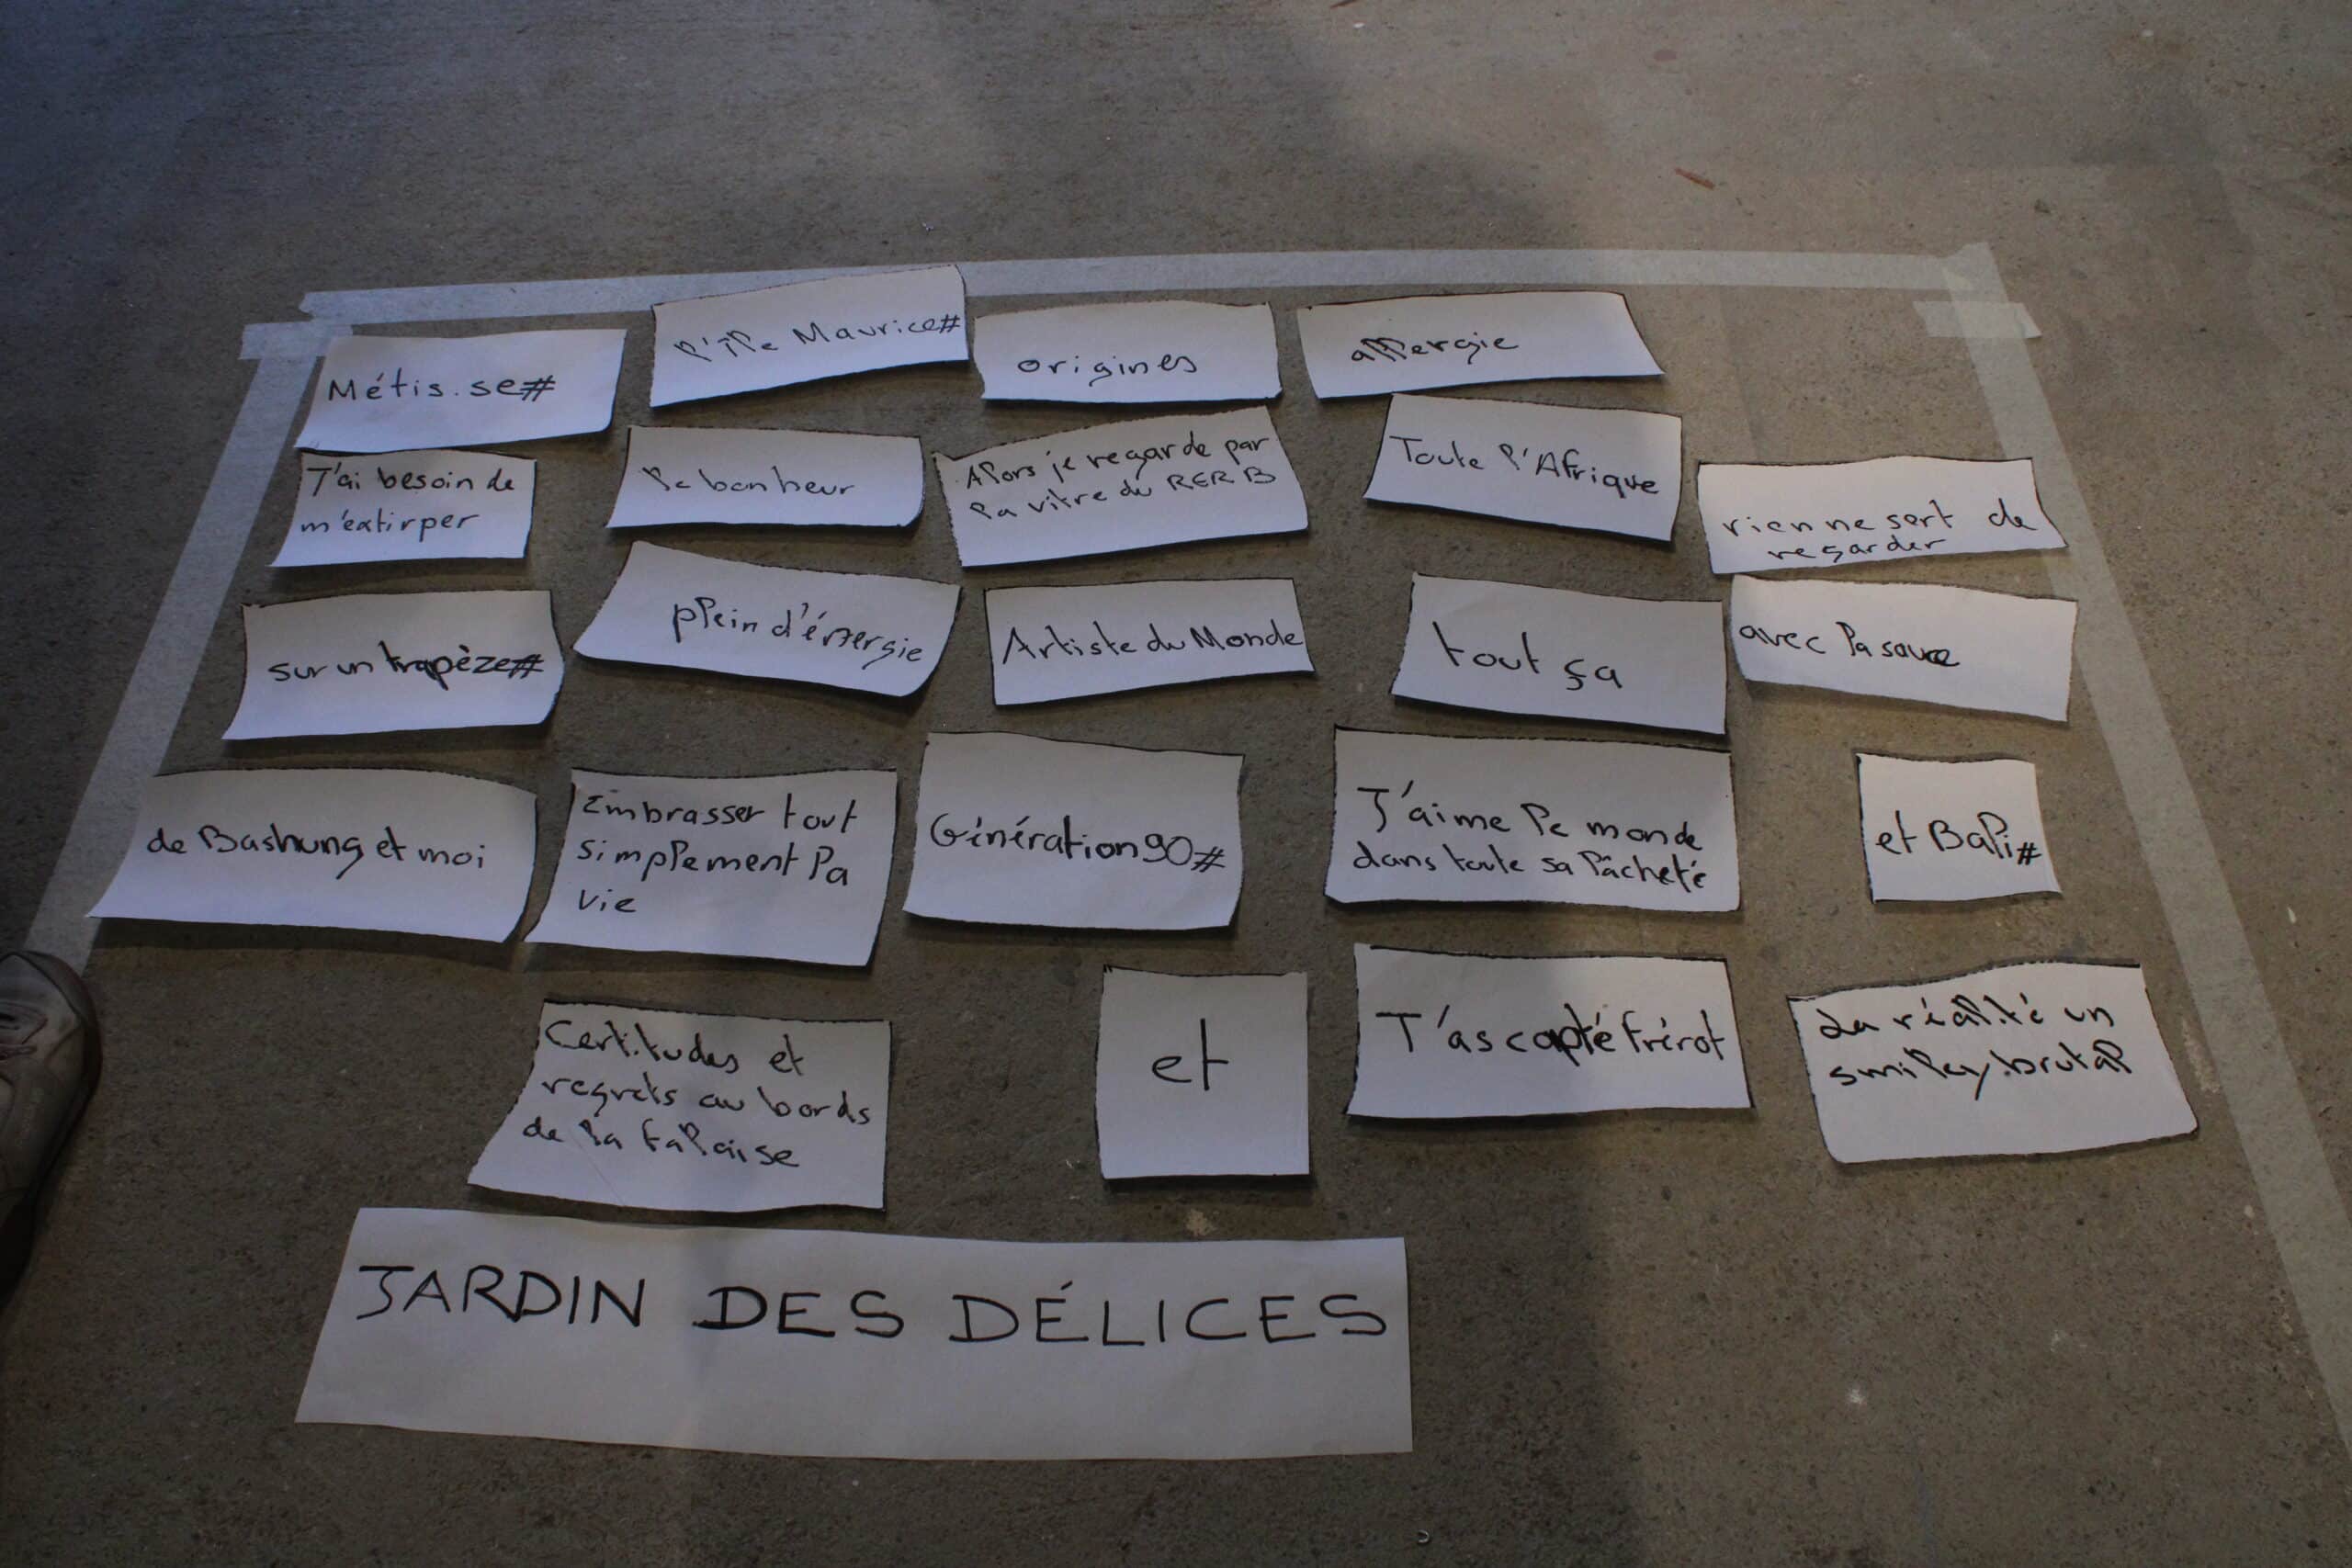 Métis.se#
l'île Maurice#
origines
allergie
J'ai besoin de
m'extirper
le bonheur
Alors je regarde par
la vitre du RER B
Toute l'Afrique
rien ne sert de
regarder
sur un trapèze#
plein d'énergie
Artiste du Monde
tout ça
avec la sauce
de Bashung et moi
Embrasser tout
simplement la
vie
Génération 90#
J'aime le monde
dans toute sa lâcheté
et Bali#
Certitudes et
regrets au bords
de la falaise
et
T'as capté frérot
La réalité un
smiley brutal
JARDIN DES DÉLICES